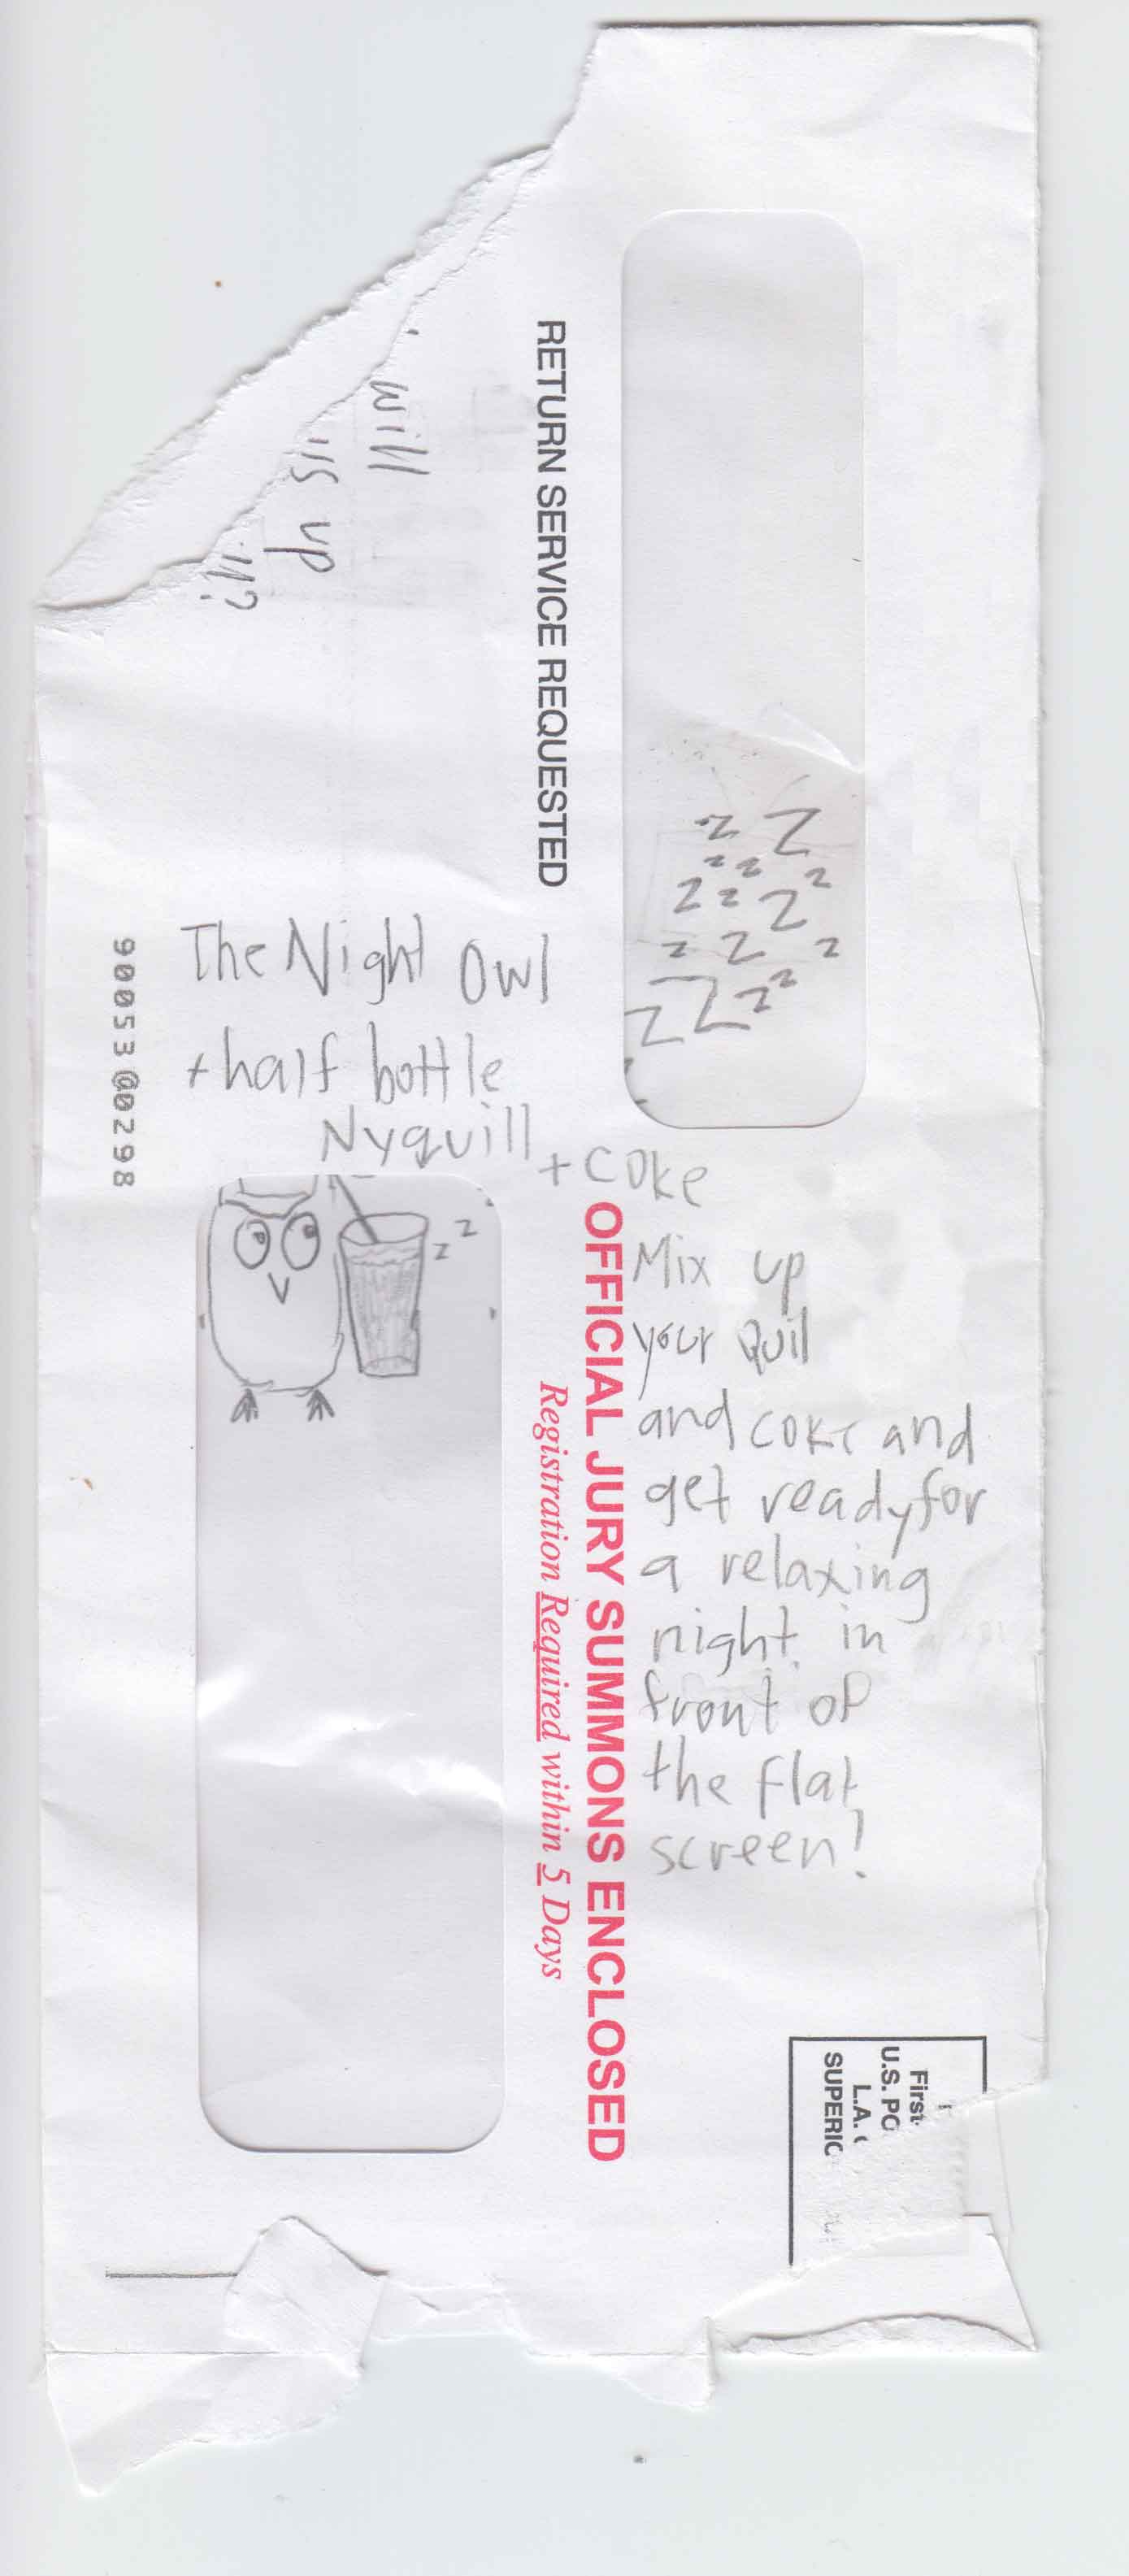 The Night Owl
+ half bottle
Nyquill
+ coke
Mix up
your Quil
and coke and
get ready for
a relaxing
night in
front of
the flat
screen!
z z
Z Z
z z z
Z z Z
z Z z
Z Z z z
RETURN SERVICE REQUESTED
OFFICIAL JURY SUMMONS ENCLOSED
Registration Required within 5 Days
90053@0298
will
us up
First-
U.S. PO
L.A.
SUPERIO